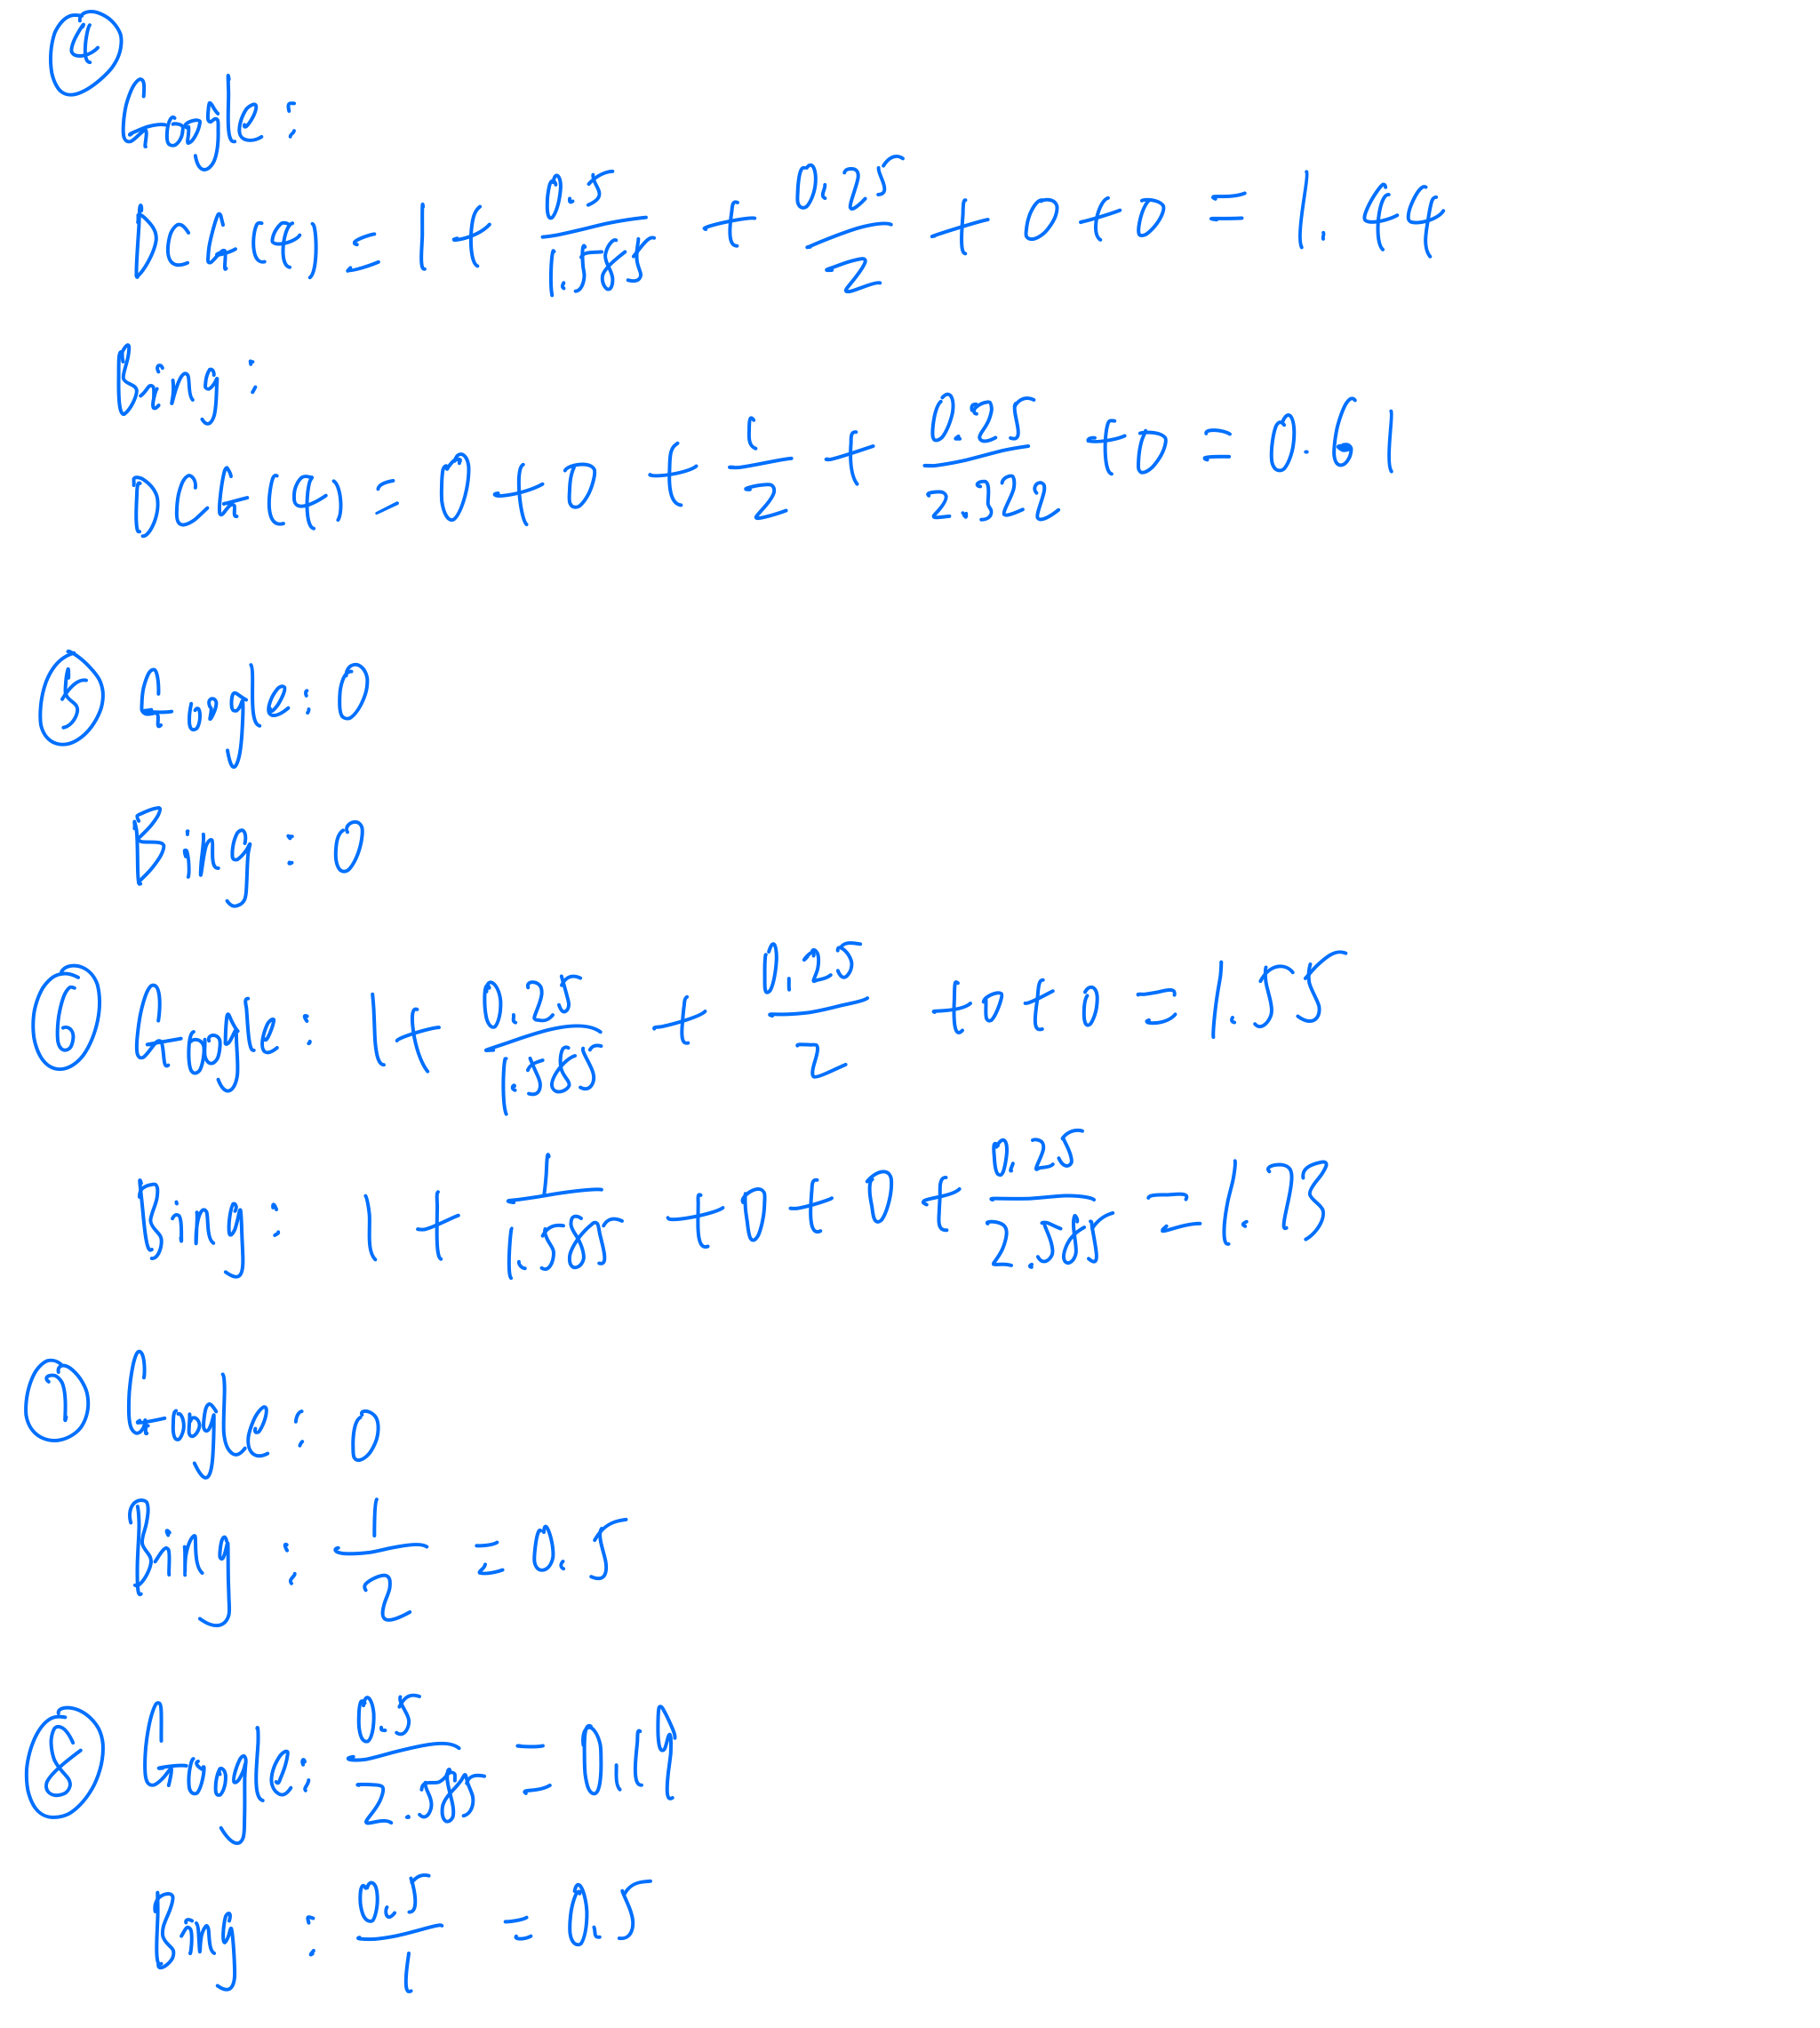 ④
Google:
DCG(Q) = 1 + 0.5/1.585 + 0.25/2 + 0 + 0 = 1.44
Bing:
DCG(Q) = 0 + 0 + 1/2 + 0.25/2.322 + 0 = 0.61
⑤ Google: 0
Bing: 0
⑥ Google: 1 + 0.25/1.585 + 0.25/2 + 0 + 0 = 1.55
Bing: 1 + 1/1.585 + 0 + 0 + 0.25/2.585 = 1.73
⑦ Google: 0
Bing: 1/2 = 0.5
⑧ Google: 0.5/2.585 = 0.19
Bing: 0.5/1 = 0.5